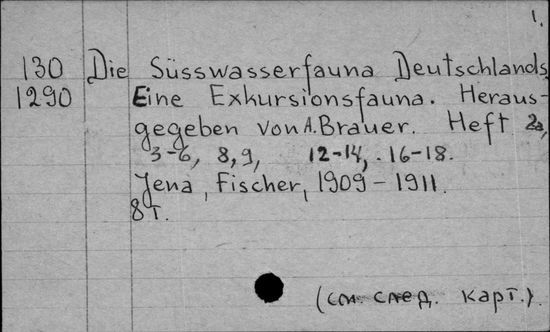 1.
130 Die Süsswasserfauna Deutschlands
1290 Eine Exkursionsfauna. Heraus-
gegeben von A. Brauer. Heft 2a,
3-6, 8, 9, 12-14, 16-18.
Jena, Fischer, 1909-1911.
8 т.
(см. след. карт.).